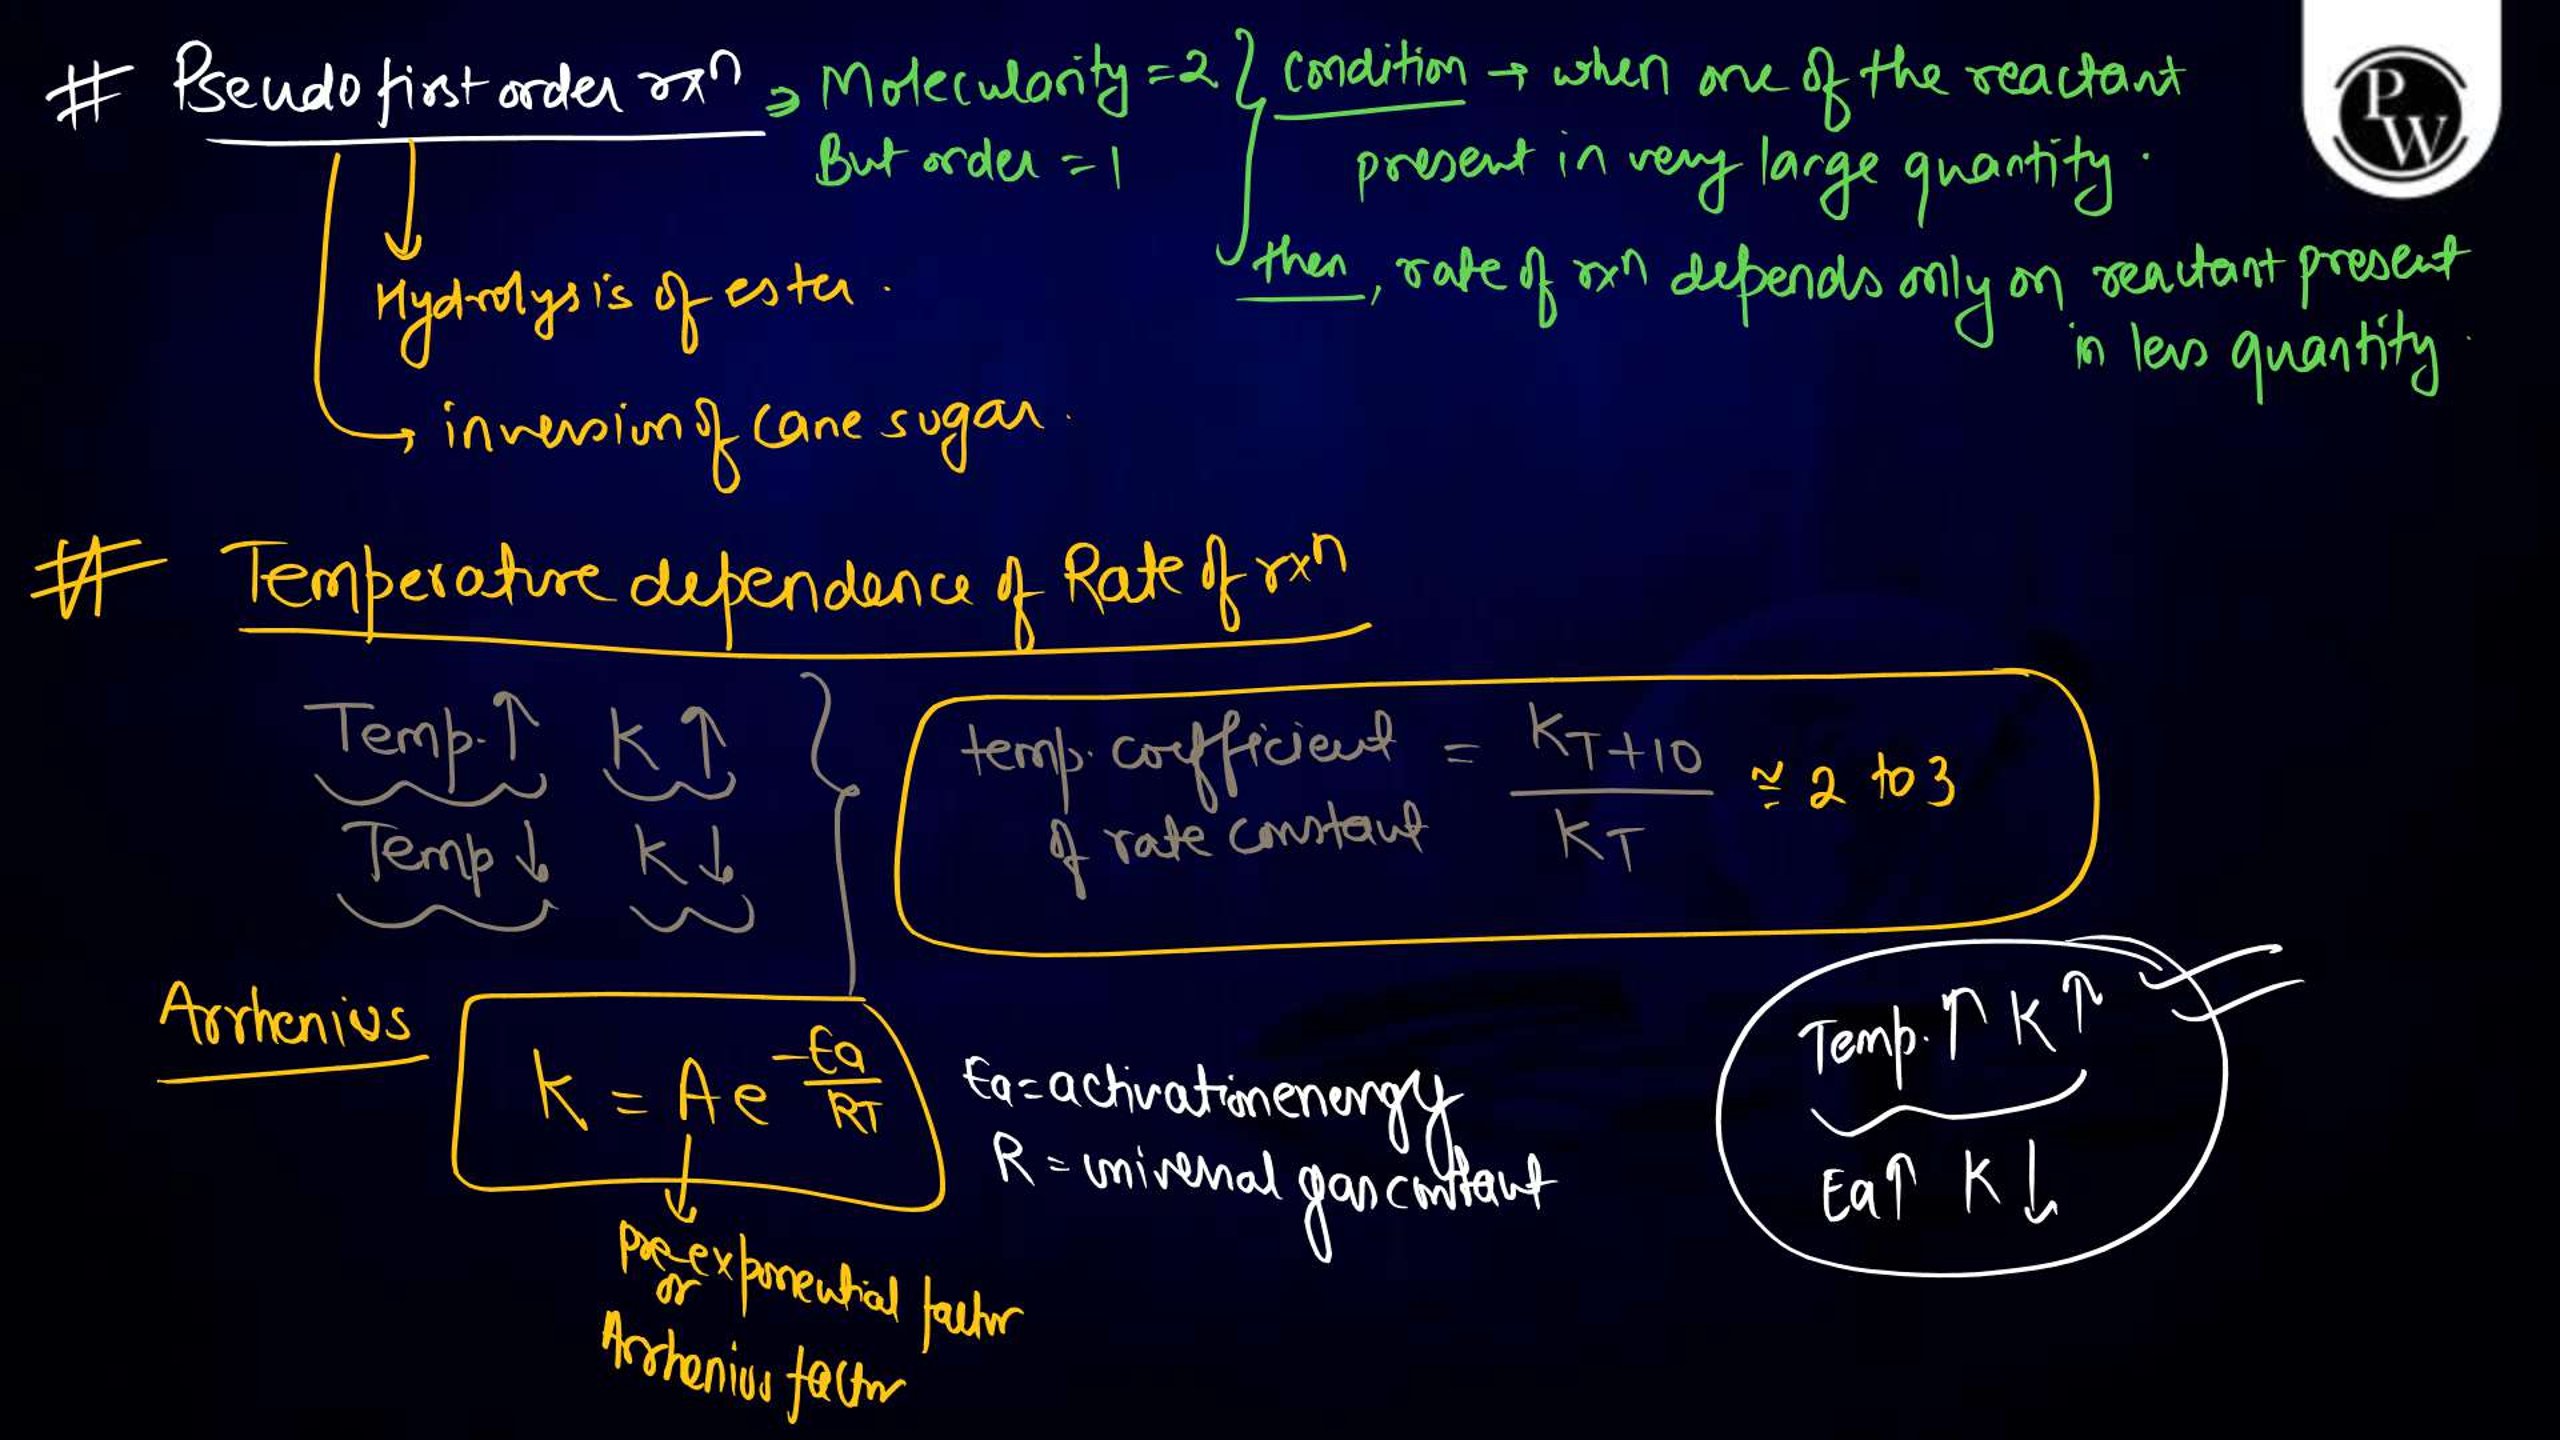 # Pseudo first order rxn ⇒ Molecularity = 2 } condition → when one of the reactant
But order = 1
present in very large quantity.
then, rate of rxn depends only on reactant present
in less quantity.
Hydrolysis of ester.
→ inversion of cane sugar.
# Temperature dependence of Rate of rxn
Temp. ↑ K ↑
Temp ↓ K ↓
temp. coefficient of rate constant = KT+10 / KT ≅ 2 to 3
Arrhenius
K = A e^-Ea/RT
Ea = activation energy
R = universal gas constant
pre-exponential factor
or
Arrhenius factor
Temp. ↑ K ↑
Ea ↑ K ↓
PW